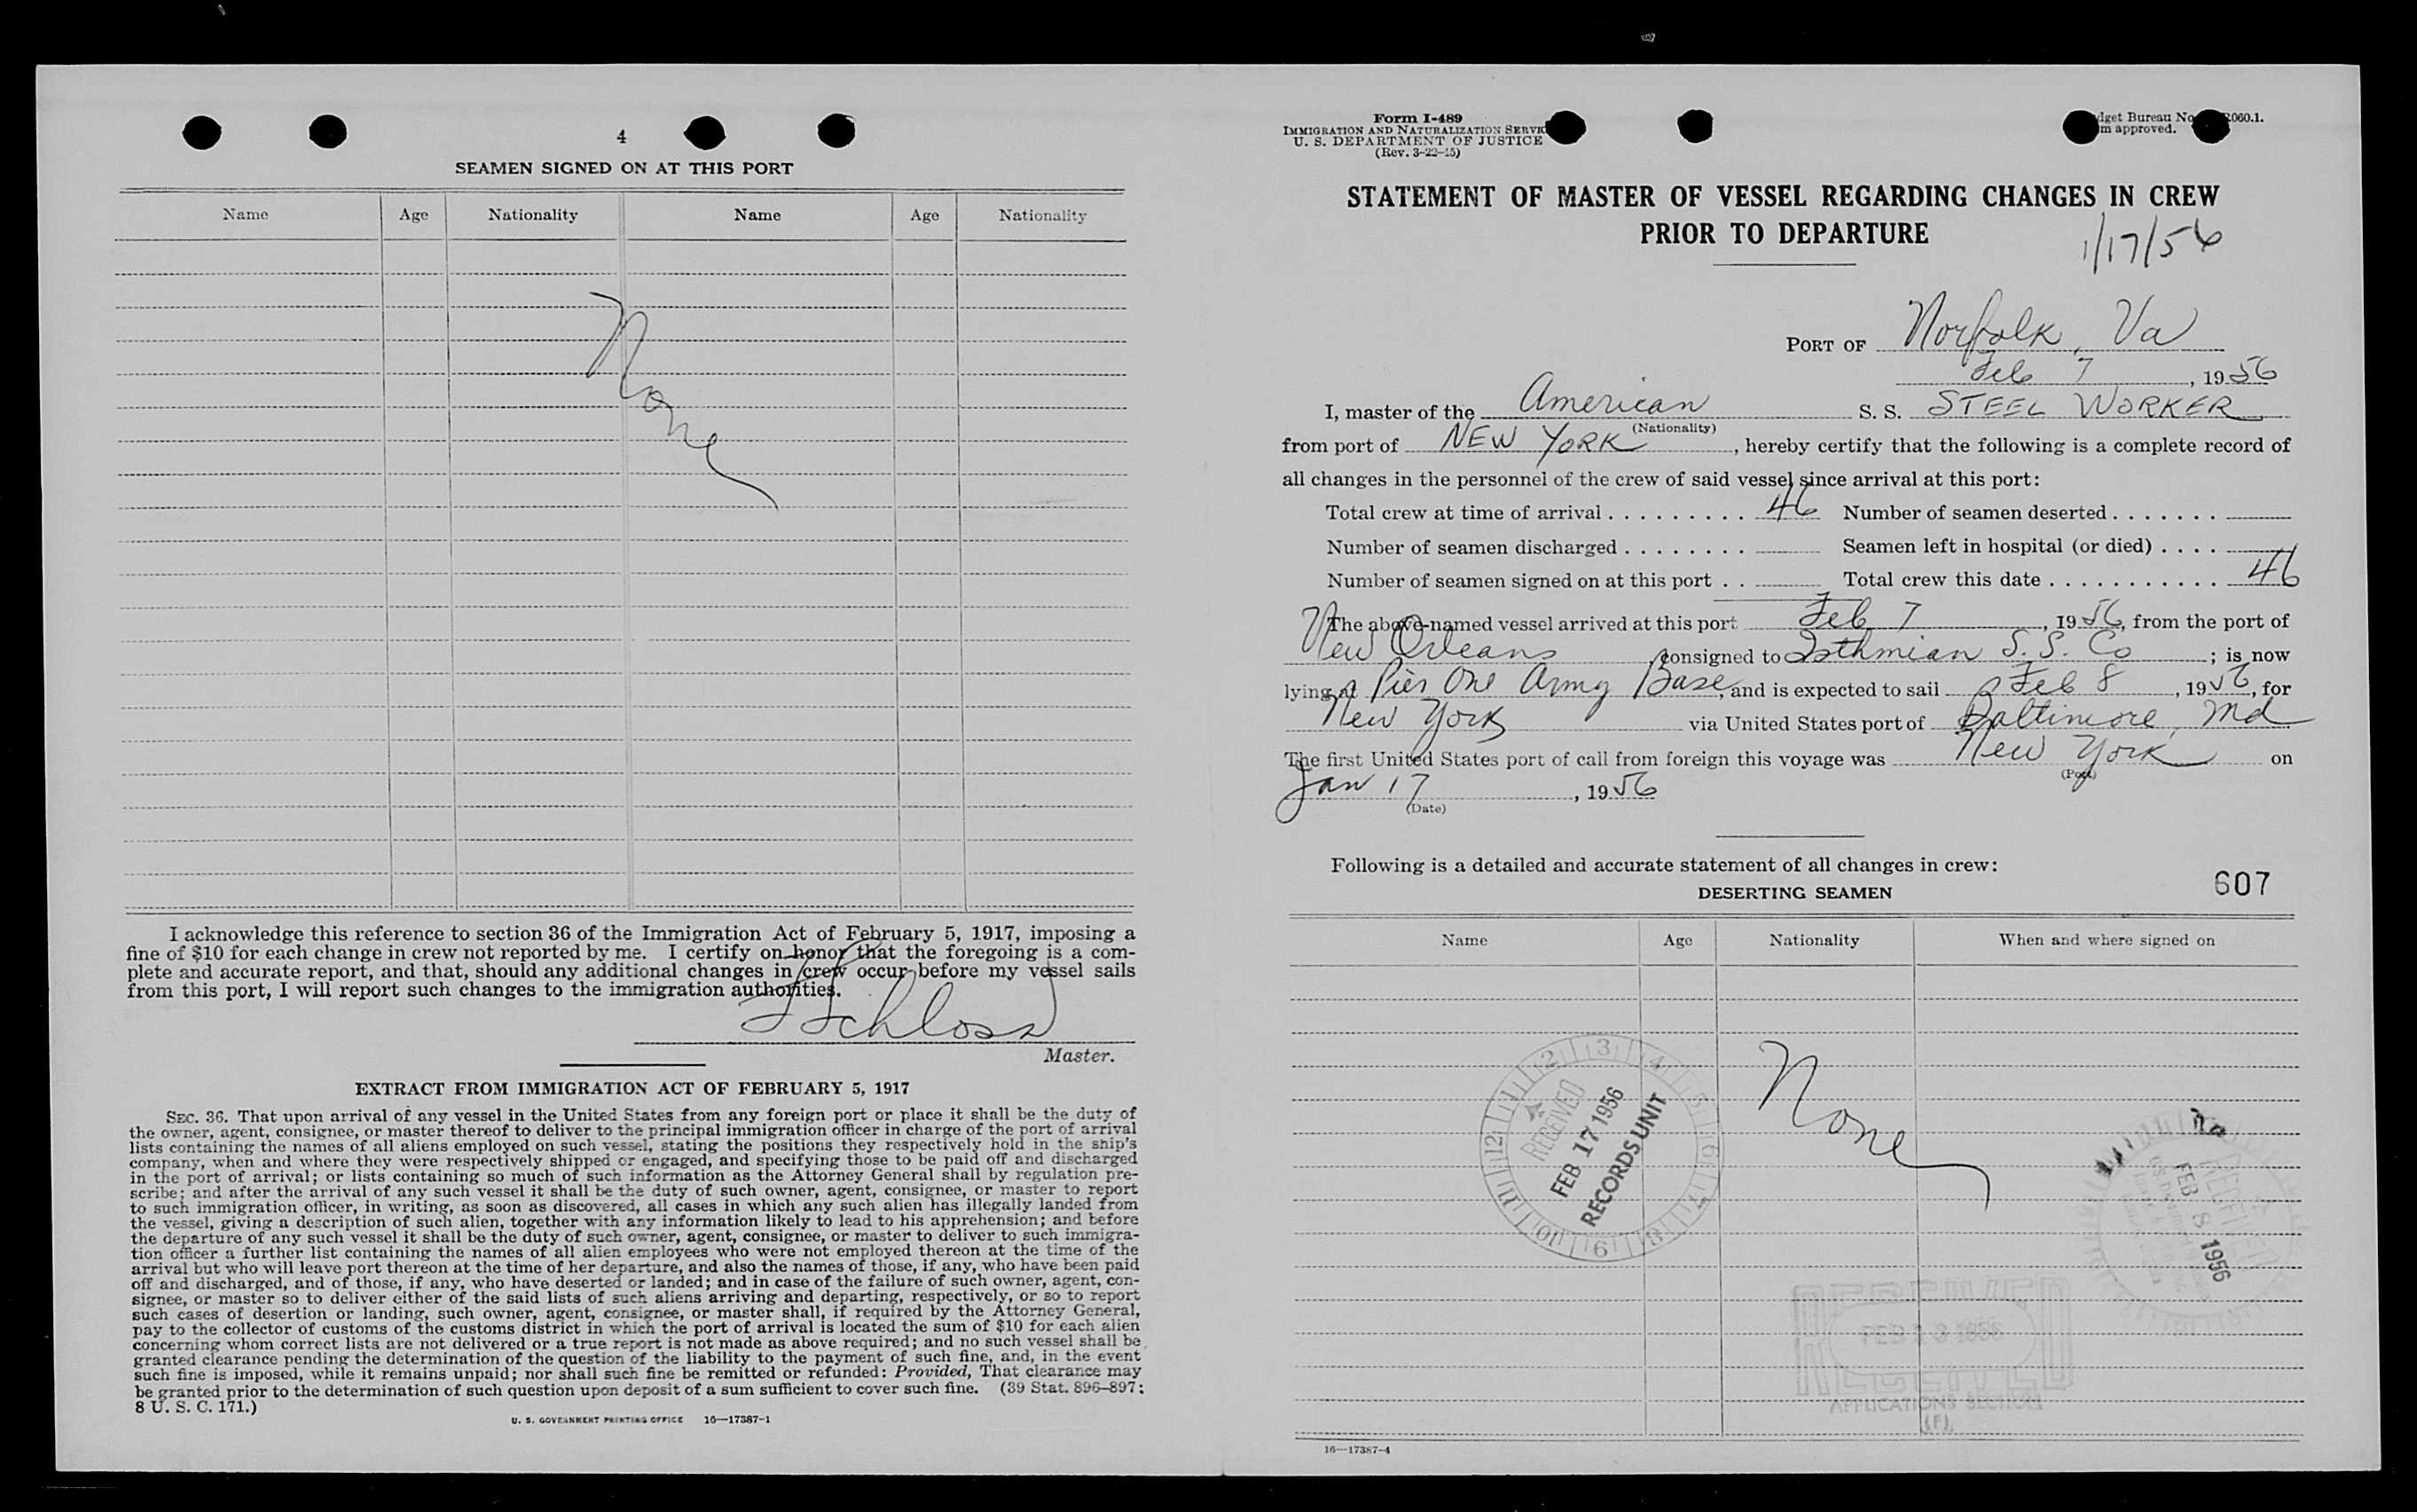 4
SEAMEN SIGNED ON AT THIS PORT
Name Age Nationality Name Age Nationality
None
I acknowledge this reference to section 36 of the Immigration Act of February 5, 1917, imposing a
fine of $10 for each change in crew not reported by me. I certify on honor that the foregoing is a com-
plete and accurate report, and that, should any additional changes in crew occur before my vessel sails
from this port, I will report such changes to the immigration authorities.
Schloss
Master.
EXTRACT FROM IMMIGRATION ACT OF FEBRUARY 5, 1917
SEC. 36. That upon arrival of any vessel in the United States from any foreign port or place it shall be the duty of
the owner, agent, consignee, or master thereof to deliver to the principal immigration officer in charge of the port of arrival
lists containing the names of all aliens employed on such vessel, stating the positions they respectively hold in the ship's
company, when and where they were respectively shipped or engaged, and specifying those to be paid off and discharged
in the port of arrival; or lists containing so much of such information as the Attorney General shall by regulation pre-
scribe; and after the arrival of any such vessel it shall be the duty of such owner, agent, consignee, or master to report
to such immigration officer, in writing, as soon as discovered, all cases in which any such alien has illegally landed from
the vessel, giving a description of such alien, together with any information likely to lead to his apprehension; and before
the departure of any such vessel it shall be the duty of such owner, agent, consignee, or master to deliver to such immigra-
tion officer a further list containing the names of all alien employees who were not employed thereon at the time of the
arrival but who will leave port thereon at the time of her departure, and also the names of those, if any, who have been paid
off and discharged, and of those, if any, who have deserted or landed; and in case of the failure of such owner, agent, con-
signee, or master so to deliver either of the said lists of such aliens arriving and departing, respectively, or so to report
such cases of desertion or landing, such owner, agent, consignee, or master shall, if required by the Attorney General,
pay to the collector of customs of the customs district in which the port of arrival is located the sum of $10 for each alien
concerning whom correct lists are not delivered or a true report is not made as above required; and no such vessel shall be
granted clearance pending the determination of the question of the liability to the payment of such fine, and, in the event
such fine is imposed, while it remains unpaid; nor shall such fine be remitted or refunded: Provided, That clearance may
be granted prior to the determination of such question upon deposit of a sum sufficient to cover such fine. (39 Stat. 896–897;
8 U. S. C. 171.)
U. S. GOVERNMENT PRINTING OFFICE 16—17387-1
Form I-489
IMMIGRATION AND NATURALIZATION SERVIC
U. S. DEPARTMENT OF JUSTICE
(Rev. 3-22-45)
dget Bureau No 060.1.
m approved.
STATEMENT OF MASTER OF VESSEL REGARDING CHANGES IN CREW
PRIOR TO DEPARTURE
1/17/56
PORT OF Norfolk, Va
Feb 7, 1956
I, master of the American S. S. STEEL WORKER
(Nationality)
from port of NEW YORK, hereby certify that the following is a complete record of
all changes in the personnel of the crew of said vessel since arrival at this port:
Total crew at time of arrival 46 Number of seamen deserted
Number of seamen discharged Seamen left in hospital (or died)
Number of seamen signed on at this port Total crew this date 46
The above-named vessel arrived at this port Feb 7, 1956, from the port of
New Orleans, consigned to Isthmian S. S. Co; is now
lying at Pier One Army Base, and is expected to sail Feb 8, 1956, for
New York via United States port of Baltimore, Md
The first United States port of call from foreign this voyage was New York on
(Port)
Jan 17, 1956
(Date)
Following is a detailed and accurate statement of all changes in crew:
607
DESERTING SEAMEN
Name Age Nationality When and where signed on
None
12 1 2 3 4 5 6 7 8 9 10 11
RECEIVED
FEB 17 1956
RECORDS UNIT
RECEIVED
FEB 8 1956
RECEIVED
FEB 13 1956
RECEIVED
APPLICATIONS SECTION
(F)
16—17387-4